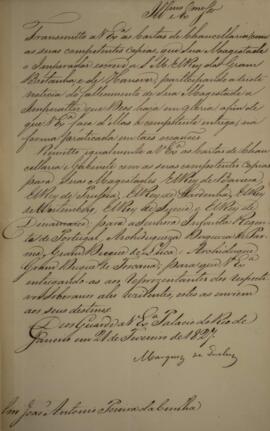 Illmo e Exmo Senr.
Transmitto a V. Exa. as Cartas de Chancellaria com
as suas competentes copias, que Sua Magestade
o Imperador escreve a S. M. El Rey da Gram
Bretanha e de Hanover, participando a triste
noticia do fallecimento de Sua Magestade a
Imperatriz que Deos haja em gloria, a fim de
que V. Exa. faça d'ellas a competente entrega, na
forma praticada em taes occasiões
Remetto igualmente a V. Exa. as Cartas de Chan
cellaria e Gabinete com as suas competentes copias
para Suas Magestades El Rey de Baviera,
El Rey de Prussia, El Rey de Sardenha, El Rey
de Wurtemberg, El Rey de Suecia, El Rey de
Dinamarca, para a Senhora Infanta Regen
te de Portugal, Archiduqueza Duqueza de Par
ma, Gram Duque de
Gram Duque de Toscana, para que V. Exa.
entregando-as aos Representantes dos respecti
vos Soberanos ahi rezidentes, estes as enviem
aos seus destinos.
Deos Guarde a V. Exa. Palacio do Rio de
Janeiro em 21 de Fevereiro de 1827.
Marquez de Queluz
Senr. João Antonio Pereira da Cunha